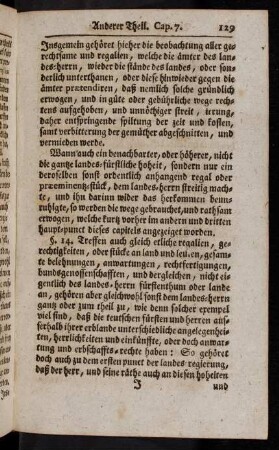 Anderer Theil. Cap. 7. 129
Insgemein gehöret hieher die beobachtung aller ge-
rechtsame und regalien, welche die ämter des lan-
des-herrn, wieder die stände des landes, oder son-
derlich unterthanen, oder diese hinwieder gegen die
ämter prætendiren, daß nemlich solche gründlich
erwogen, und in güte oder gebührliche wege rech-
tens aufgehoben, und unnöthiger streit, irrung,
daher entspringende spiltung der zeit und kosten,
samt verbitterung der gemüther abgeschnitten, und
vermieden werde.
Wann auch ein benachbarter, oder höherer, nicht
die gantze landes-fürstliche hoheit, sondern nur ein
deroselben sonst ordentlich anhangend regal oder
præeminentz-stück, dem landes-herrn streitig mach-
te, und ihn darinn wider das herkommen beun-
ruhigte, so werden die wege gebrauchet, und rathsam
erwogen, welche kurtz vorher im andern und dritten
haupt-punct dieses capitels angezeiget worden.
§. 14. Treffen auch gleich etliche regalien, ge-
rechtigkeiten, oder stücke an land und leuten, gesam-
te belehnungen, anwartungen, rechtfertigungen,
bundsgenossenschafften, und dergleichen, nicht ei-
gentlich des landes-herrn fürstenthum oder lande
an, gehören aber gleichwohl sonst dem landes-herrn
gantz oder zum theil zu, wie denn solcher exempel
viel sind, daß die teutschen fürsten und herren aus-
serhalb ihrer erblande unterschiedliche angelegenhei-
ten, herrlichkeiten und einkünffte, oder doch anwar-
tung und erbschaffts-rechte haben: So gehöret
doch auch zu dem ersten punct der landes-regierung,
daß der herr, und seine räthe auch an diesen hoheiten
J und